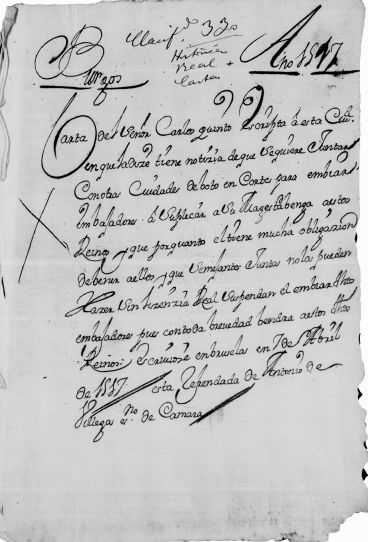 Burgos
Año 1517
Clasif.ª 330
Histórica
Real +
Carta
Carta del Señor Carlos quinto escripta á esta Ciu.d
en que la dize tiene notizia de que se quiere Juntar
Con otras Ciudades de boto en Cortes para embiar
embaladores á suplicar a Su Magestad benga a estos
Reinos y que porquanto el tiene mucha obligazion
de benir a ellos, y que semejantes Juntas no las pueden
Hazer sin lizenzia Real suspendan el embiar dhos
embaladores pues con toda brevedad bendra a estos dhos
Reinos: escriviose en bruselas en 7 de Abril
de 1517 esta Refrendada de Antonio de
Villegas es.no de Camara